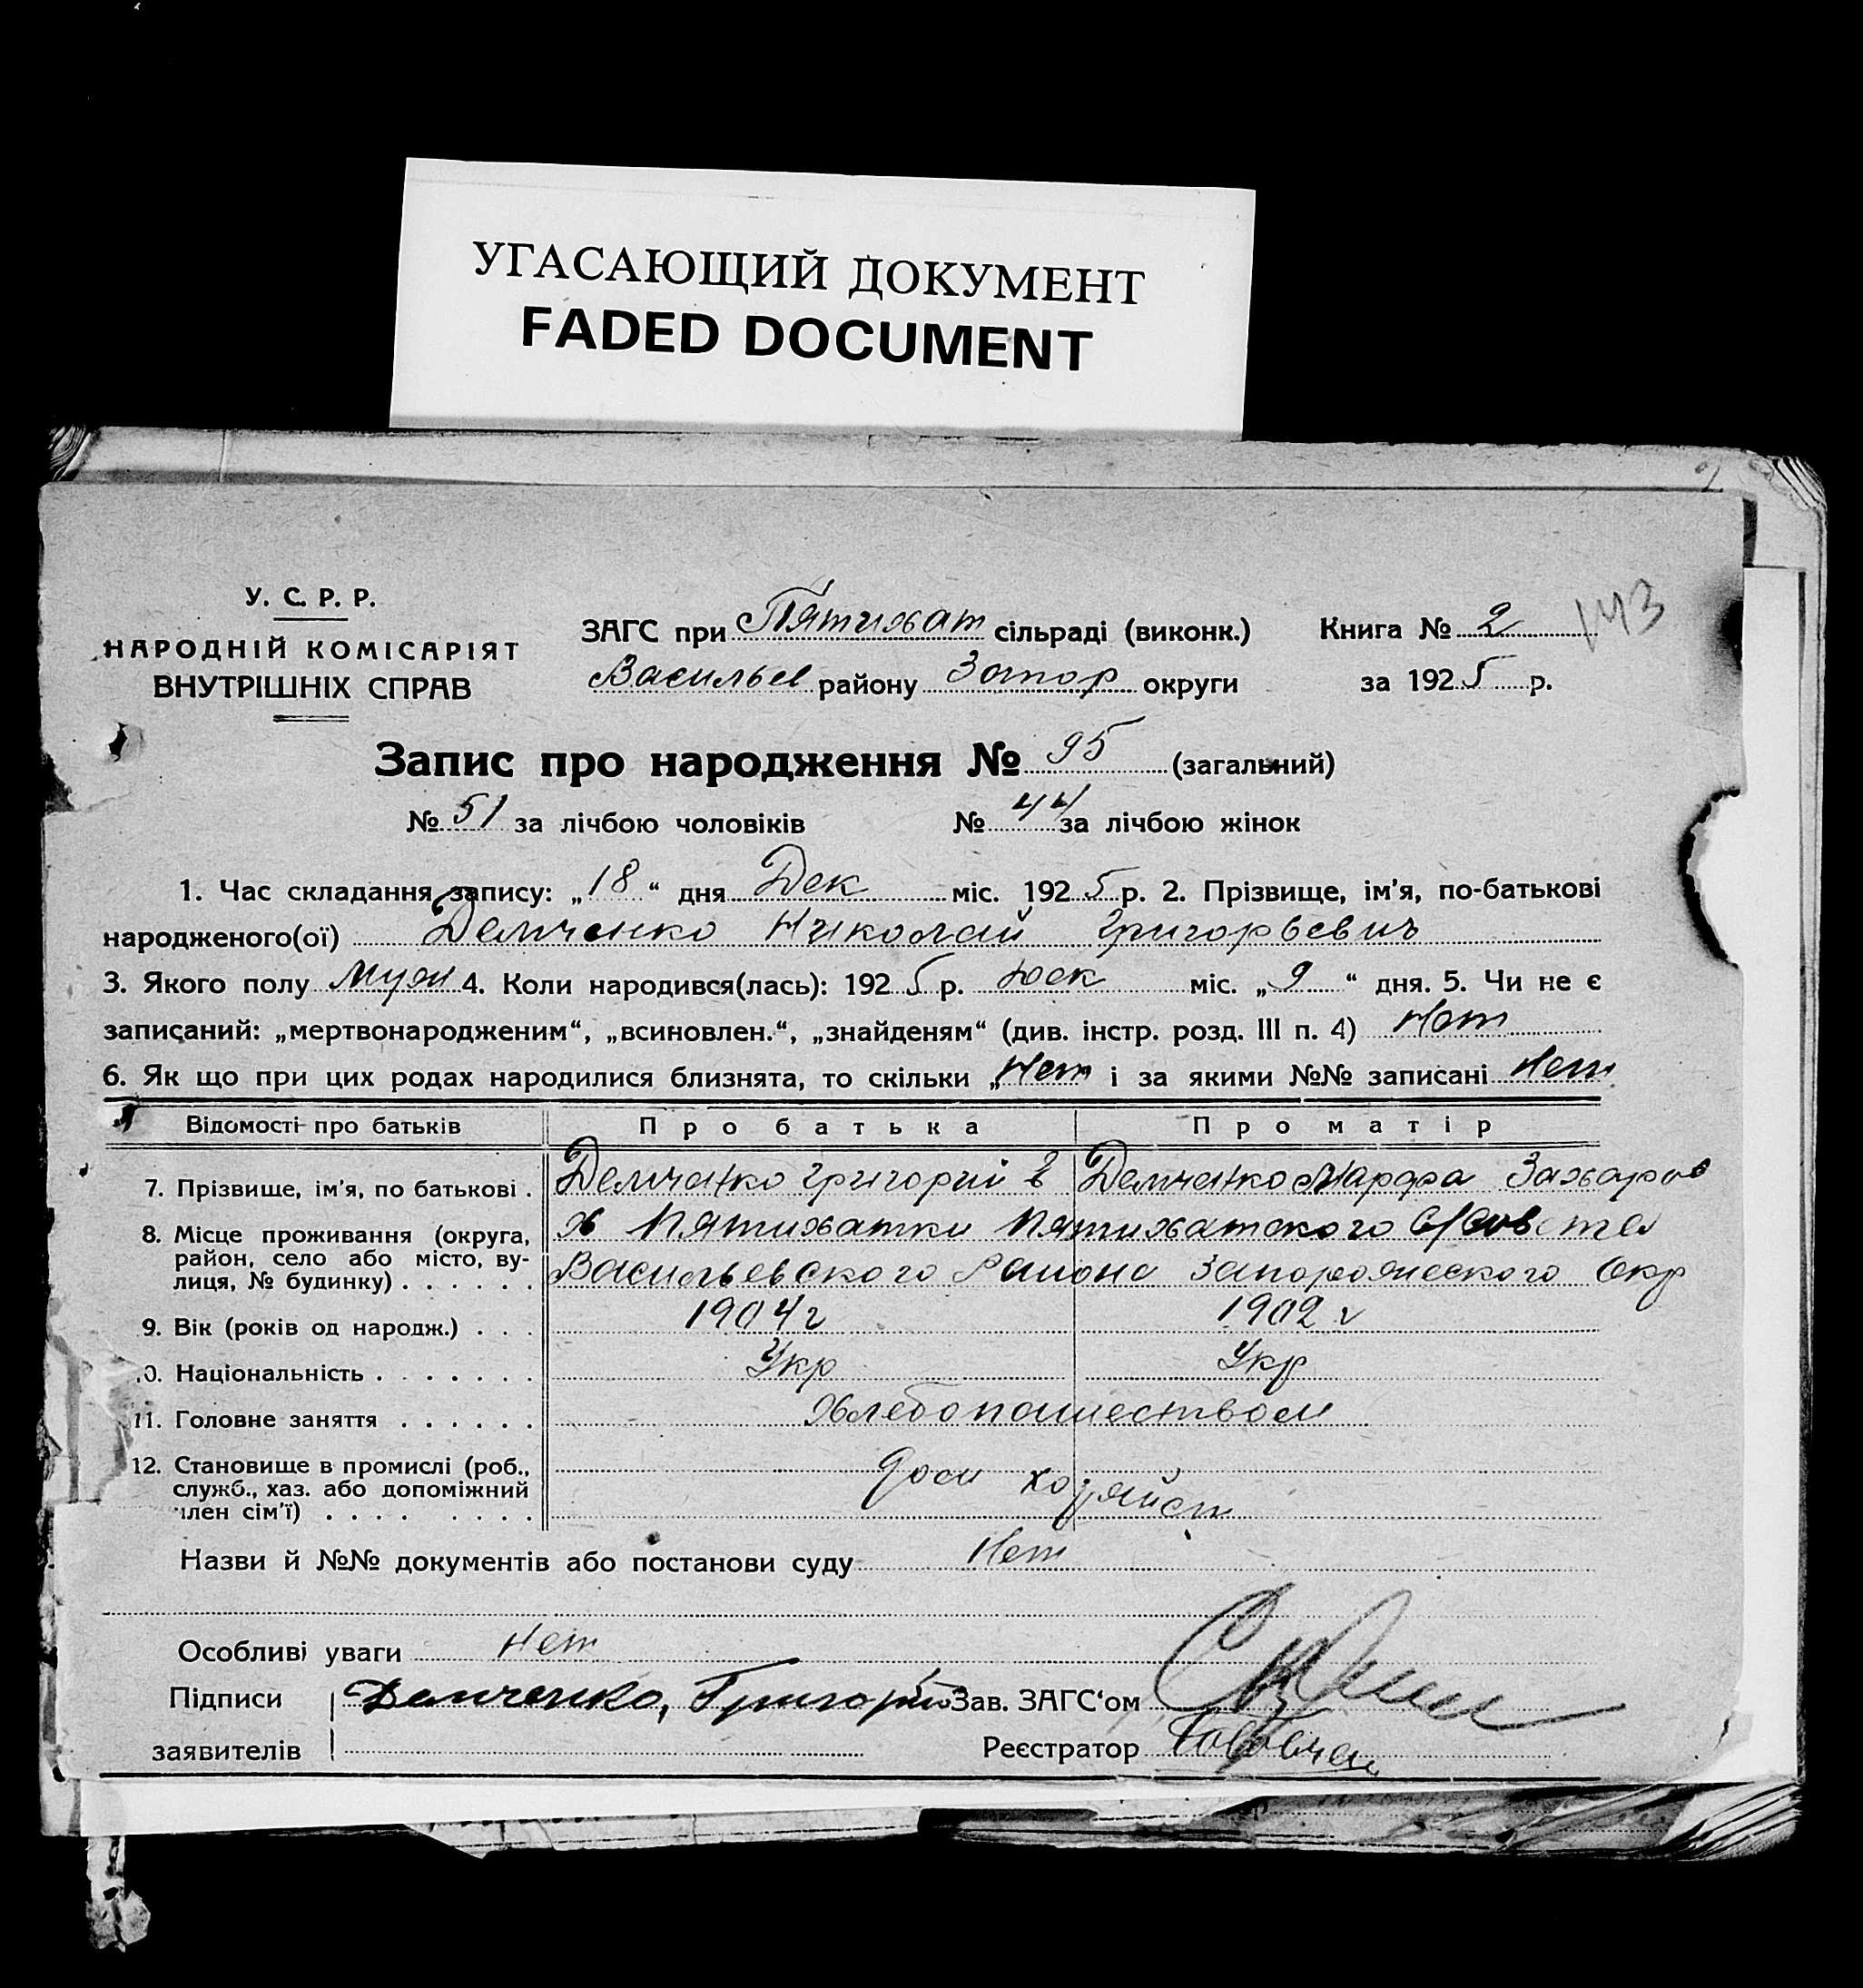 УГАСАЮЩИЙ ДОКУМЕНТ
FADED DOCUMENT
У. С. Р. Р.
НАРОДНІЙ КОМІСАРІЯТ
ВНУТРІШНІХ СПРАВ
ЗАГС при Пятихат сільраді (виконк.)
Васильев району Запор округи
Книга № 2
143
за 1925 р.
Запис про народження № 95 (загальний)
№ 51 за лічбою чоловіків № 44 за лічбою жінок
1. Час складання запису: „18“ дня Дек міс. 1925 р. 2. Прізвище, ім’я, по-батькові
народженого(ої) Демченко Николай Григорьевич
3. Якого полу муж 4. Коли народився(лась): 1925 р. Дек міс. „9“ дня. 5. Чи не є
записаний: „мертвонародженим“, „всиновлен.“, „знайденям“ (див. інстр. розд. III п. 4) Нет
6. Як що при цих родах народилися близнята, то скільки „Нет і за якими №№ записані Нет
Відомості про батьків Про батька Про матір
7. Прізвище, ім’я, по батькові . Демченко Григорий Демченко Марфа Захаров
8. Місце проживання (округа, район, село або місто, вулиця, № будинку) . . . . . . х Пятихатки Пятихатского С/Совета
Васильевского Района Запорожского Окр
9. Вік (років од народж.) . . . 1904 г 1902 г
10. Національність . . . . . . . Укр Укр
11. Головне заняття . . . . . . Хлебопашеством
12. Становище в промислі (роб., служб., хаз. або допоміжний член сім’ї) . . . . . . . . хозяйст
Назви й №№ документів або постанови суду Нет
Особливі уваги Нет
Підписи Демченко, Григорій Зав. ЗАГС‘ом
заявителів Реєстратор